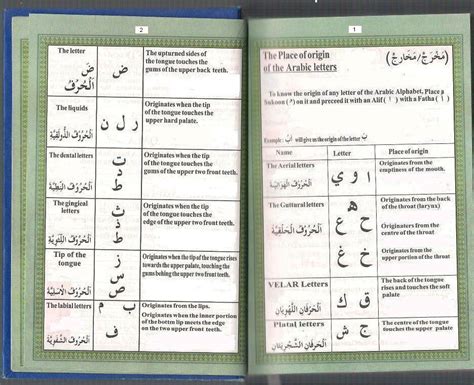 1
The Place of origin
of the Arabic letters
(مَخْرَجْ / مَخَارِجْ)
To know the origin of any letter of the Arabic Alphabet, Place a
Sukoon (ْ) on it and preceed it with an Alif ( ا ) with a Fatha (َ)
Example : اَبْ will give us the origin of the letter بَ
Name Letter Place of origin
The Aerial letters
اَلْحُرُوْفُ الْهَوَائِيَّة
ا و ي
Originates from the
emptiness of the mouth.
The Guttural letters
اَلْحُرُوْفُ الْحَلْقِيَّة
ء ه
ع ح
غ خ
Originates from the back
of the throat (larynx)
Originates from the
centre of the throat
Originates from the
upper portion of the throat
VELAR Letters
اَلْحَرْفَانِ اللَّهْوِيَانِ
ق ك
The back of the tongue
rises and touches the soft
palate
Platal letters
اَلْحَرْفَانِ الشَّجَرِيَّتَانِ
ج ش
The centre of the tongue
touches the upper palate
2
The letter
ضَ
اَلْحُرُوْفُ
ض
The upturned sides of
the tongue touches the
gums of the upper back teeth.
The liquids
اَلْحُرُوْفُ الذَّوْلَقِيَّة
ر ل ن
Originates when the tip
of the tongue touches the
upper hard palate.
The dental letters
اَلْحُرُوْفُ النِّطْعِيَّة
ت
د
ط
Originates when the tip
of the tongue touches the
gums of the two upper front teeth.
The gingical
letters
اَلْحُرُوْفُ اللِّثَوِيَّة
ث
ذ
ظ
Originates when the tip
of the tongue touches the
edge of the upper two front teeth.
Tip of the
tongue
اَلْحُرُوْفُ الْاَسَلِيَّة
ز
س
ص
Originates when the tip of the tongue rises
towards the upper palate, touching the
gums behing the upper two front teeth.
The labial letters
اَلْحُرُوْفُ الشَّفَوِيَّة
ب م
ف
Originates from the lips.
Originates when the inner portion
of the bottm lip meets the edge
on the two upper front teeth.